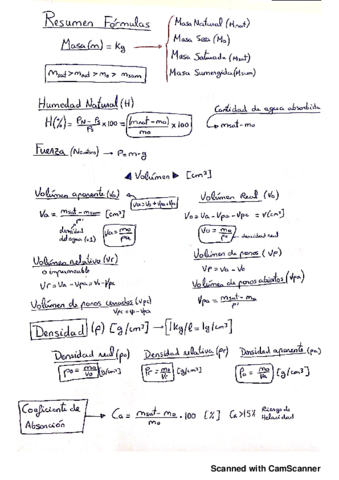 Resumen Fórmulas
Masa (m) = Kg
Masa Natural (Mnat)
Masa Seca (Mo)
Masa Saturada (Msat)
Masa Sumergida (Msum)
msat > mnat > mo > msum
Humedad Natural (H)
H(%) = Ph - Ps / Ps x 100 = (mnat - mo) / mo x 100
Cantidad de agua absorbida
↳ msat - mo
Fuerza (Newtons) → P = m·g
◄ Volúmen ► [cm³]
Volúmen aparente (Va)
Va = Vo + Vpa + Vpc
Va = msat - msum / ρ' [cm³]
densidad del agua (=1)
Va = mo / ρa
Volúmen Real (Vo)
Vo = Va - Vpa - Vpc = v[cm³]
Vo = mo / ρo → densidad real
Volúmen relativo (Vr)
o impermeable
Vr = Va - Vpa = Vo + Vpc
Volúmen de poros (Vp)
Vp = Va - Vo
Volúmen de poros abiertos (Vpa)
Vpa = msat - mo / ρ'
Volúmen de poros cerrados (Vpc)
Vpc = Vp - Vpa
Densidad (ρ) [g/cm³] → [1Kg/l = 1g/cm³]
Densidad real (ρo)
ρo = mo / Vo [g/cm³]
Densidad relativa (ρr)
ρr = mo / Vr [g/cm³]
Densidad aparente (ρa)
ρa = mo / Va [g/cm³]
Coeficiente de Absorción
→ Ca = msat - mo / mo · 100 [%]
Ca > 15% Riesgo de Heladicidad
Scanned with CamScanner